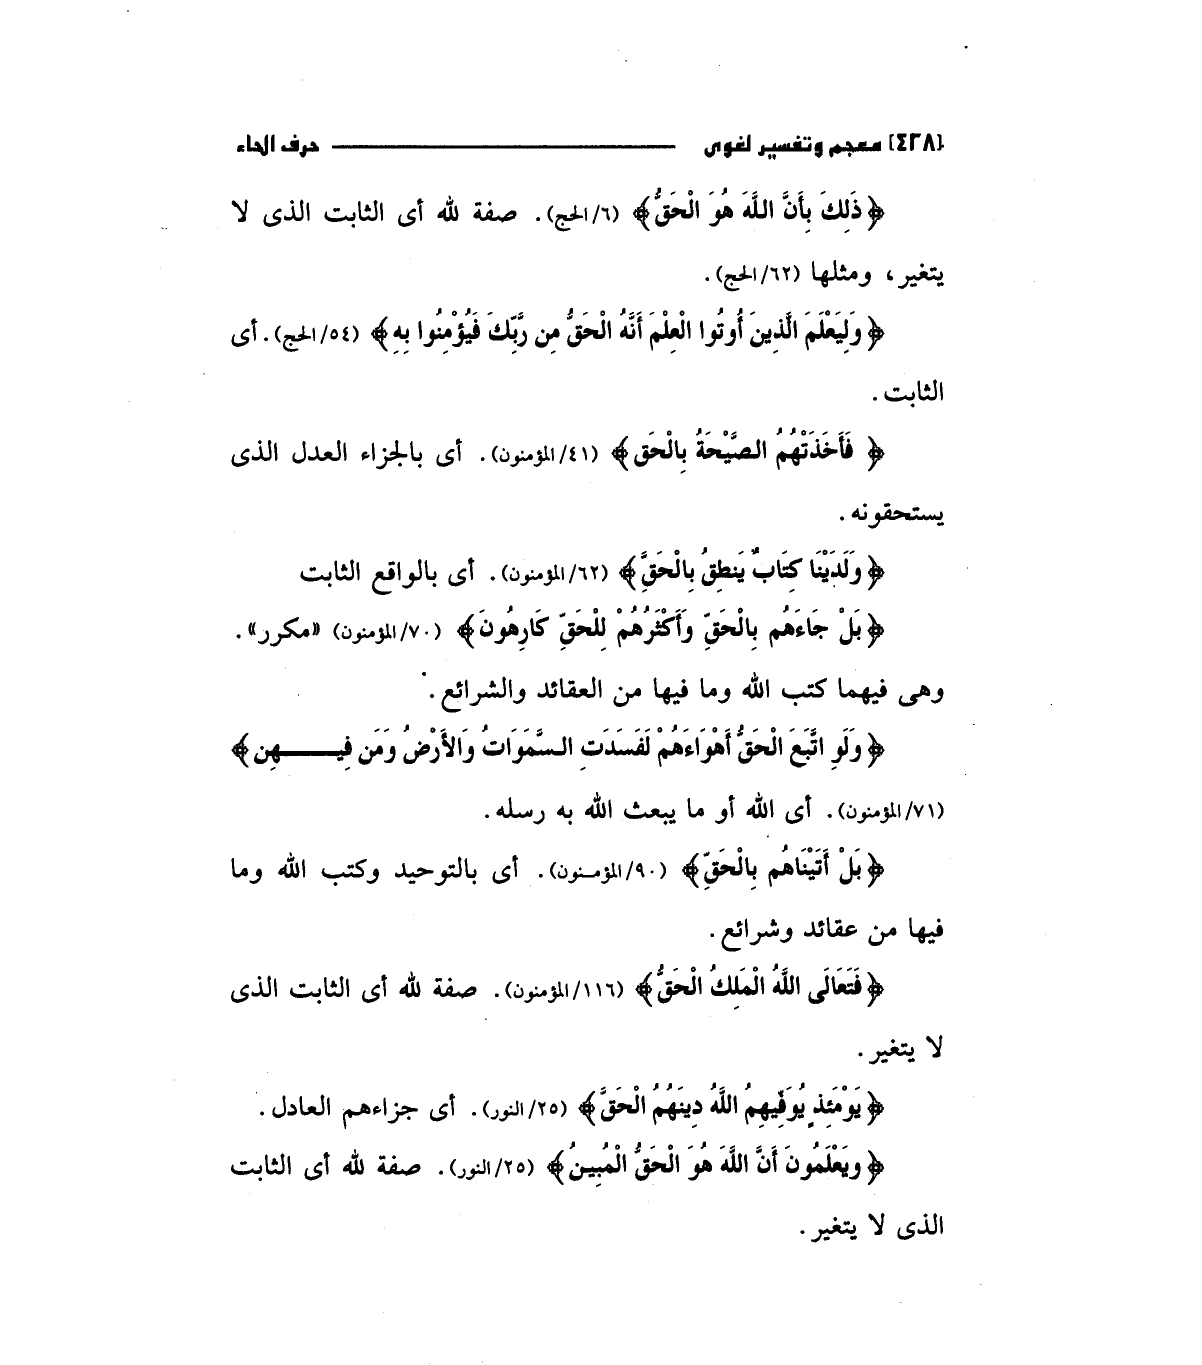 [٤٣٨] معجم وتفسير لغوى حرف الحاء
﴿ذَلِكَ بِأَنَّ اللَّهَ هُوَ الْحَقُّ﴾ (٦/الحج). صفة لله أى الثابت الذى لا
يتغير، ومثلها (٦٢/الحج).
﴿وَلِيَعْلَمَ الَّذِينَ أُوتُوا الْعِلْمَ أَنَّهُ الْحَقُّ مِن رَّبِّكَ فَيُؤْمِنُوا بِهِ﴾ (٥٤/الحج). أى
الثابت.
﴿فَأَخَذَتْهُمُ الصَّيْحَةُ بِالْحَقِ﴾ (٤١/المؤمنون). أى بالجزاء العدل الذى
يستحقونه.
﴿وَلَدَيْنَا كِتَابٌ يَنطِقُ بِالْحَقِّ﴾ (٦٢/المؤمنون). أى بالواقع الثابت
﴿بَلْ جَاءَهُم بِالْحَقِّ وَأَكْثَرُهُمْ لِلْحَقِّ كَارِهُونَ﴾ (٧٠/المؤمنون) «مكرر».
وهى فيهما كتب الله وما فيها من العقائد والشرائع.
﴿وَلَوِ اتَّبَعَ الْحَقُّ أَهْوَاءَهُمْ لَفَسَدَتِ السَّمَوَاتُ وَالأَرْضُ وَمَن فِيهِن﴾
(٧١/المؤمنون). أى الله أو ما يبعث الله به رسله.
﴿بَلْ أَتَيْنَاهُم بِالْحَقِّ﴾ (٩٠/المؤمنون). أى بالتوحيد وكتب الله وما
فيها من عقائد وشرائع.
﴿فَتَعَالَى اللَّهُ الْمَلِكُ الْحَقُّ﴾ (١١٦/المؤمنون). صفة لله أى الثابت الذى
لا يتغير.
﴿يَوْمَئِذٍ يُوَفِّيهِمُ اللَّهُ دِينَهُمُ الْحَقَّ﴾ (٢٥/النور). أى جزاءهم العادل.
﴿وَيَعْلَمُونَ أَنَّ اللَّهَ هُوَ الْحَقُّ الْمُبِينُ﴾ (٢٥/النور). صفة لله أى الثابت
الذى لا يتغير.